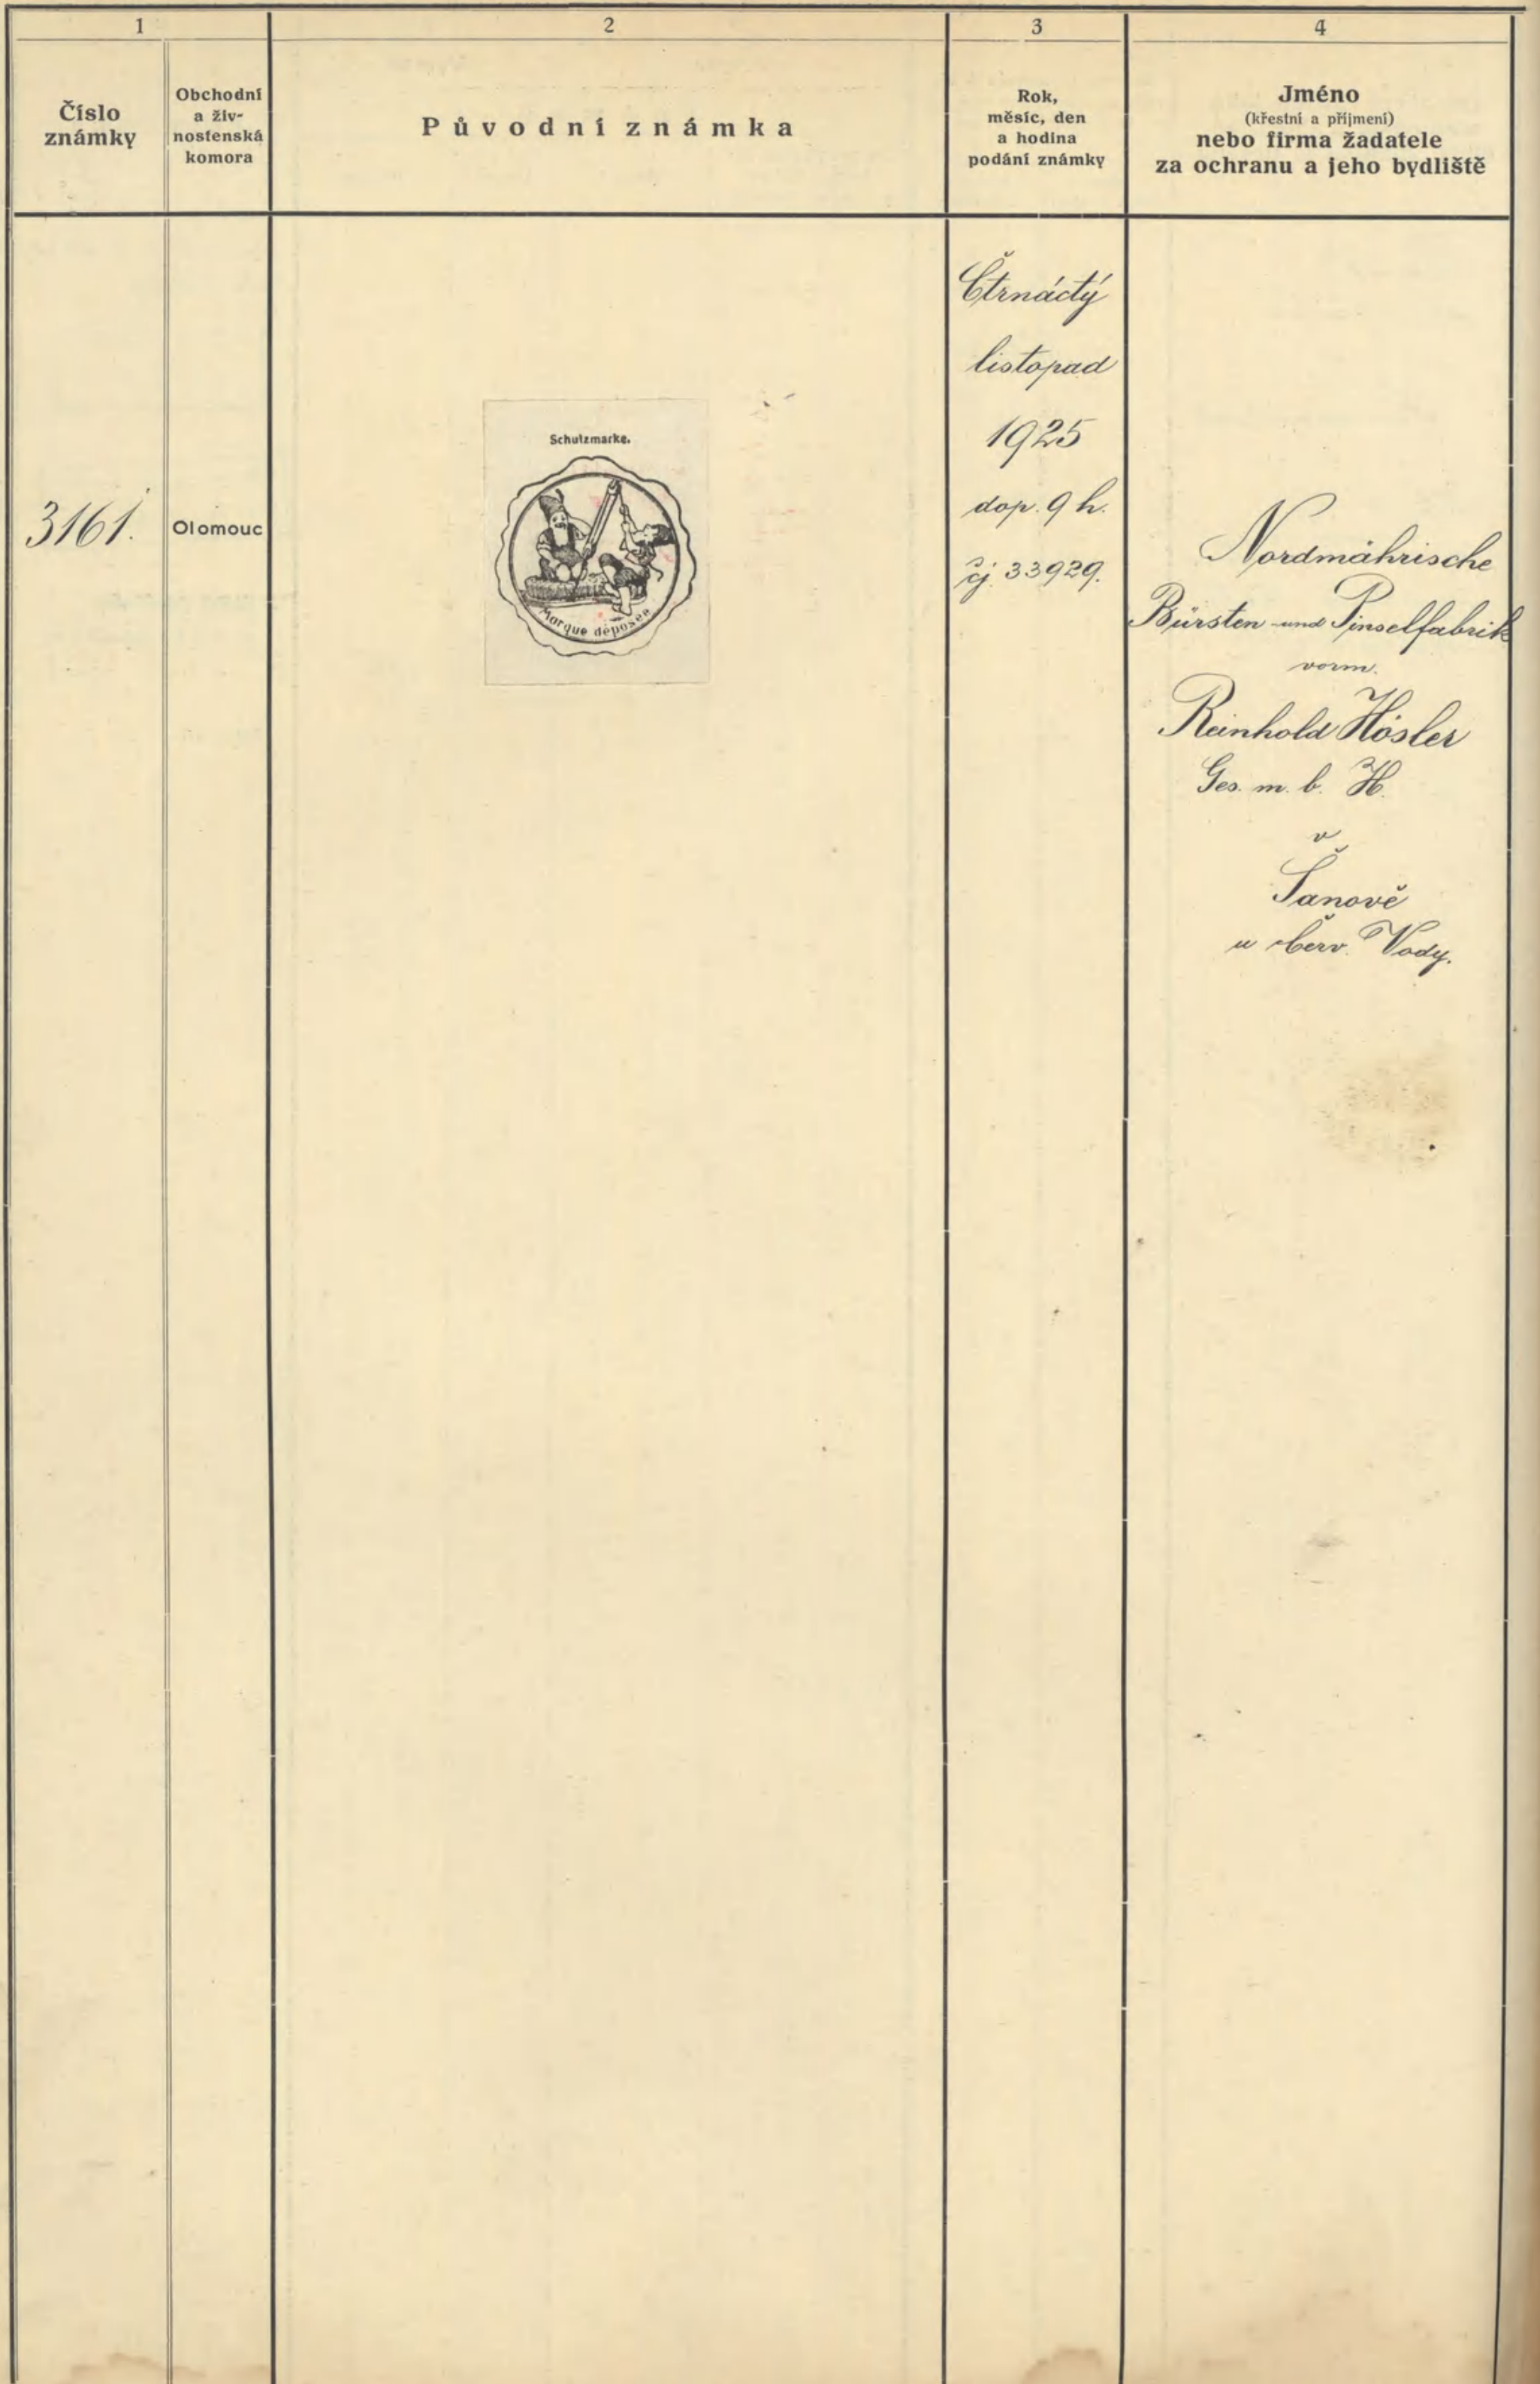 1
2
3
4
Číslo
známky
Obchodní
a živ-
nostenská
komora
Původní známka
Rok,
měsíc, den
a hodina
podání známky
Jméno
(křestní a příjmení)
nebo firma žadatele
za ochranu a jeho bydliště
3161.
Olomouc
Schutzmarke.
Marque déposée
Čtrnáctý
listopad
1925
dop. 9 h.
čj. 33929.
Nordmährische
Bürsten- und Pinselfabrik
vorm.
Reinhold Hösler
Ges. m. b. H.
v
Šanově
u Červ. Vody.